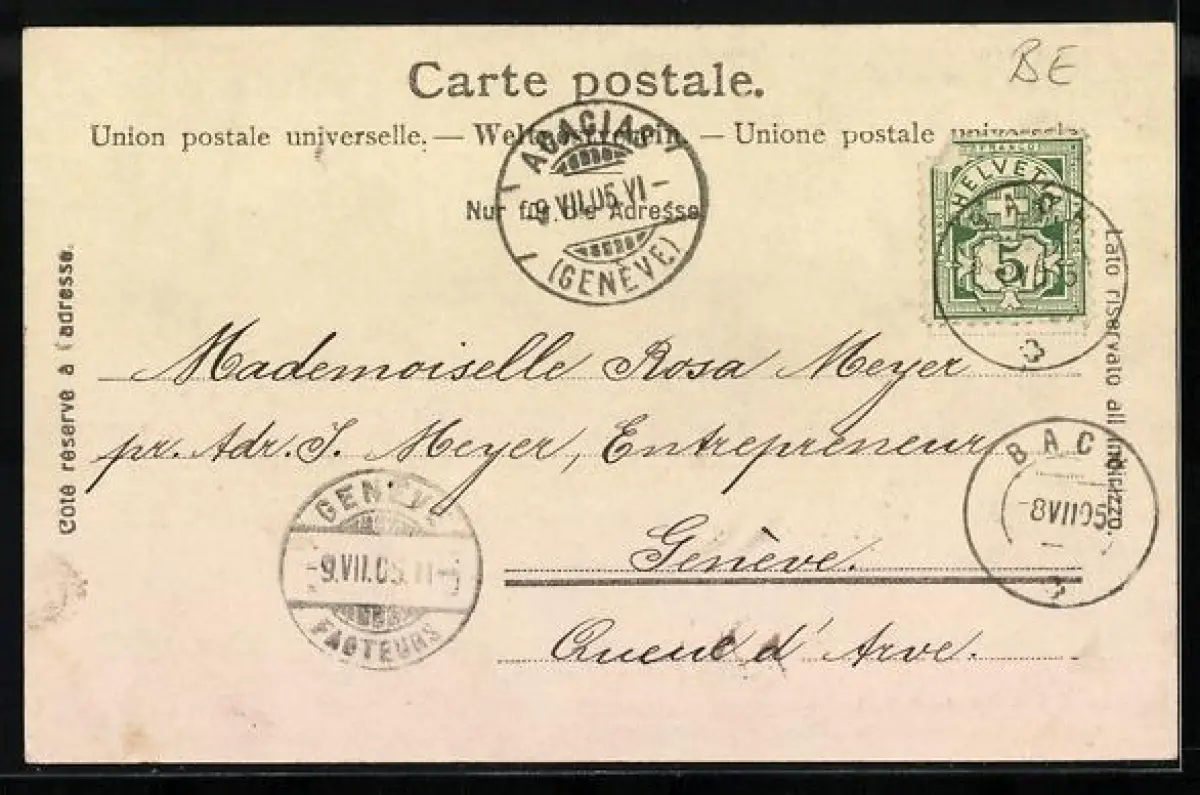 BE
Carte postale.
Union postale universelle. — Weltpostverein. — Unione postale universale
Nur für die Adresse
ACACIAS
9.VII.05.VI
(GENÈVE)
FRANCO
HELVETIA
5
Côté réservé à l'adresse.
Lato riservato all'indirizzo.
Mademoiselle Rosa Meyer
pr. Adr. J. Meyer, Entrepreneur
Genève.
Queue d'Arve.
BACH
-8VII05
GENÈVE
-9.VII.05.
FACTEURS